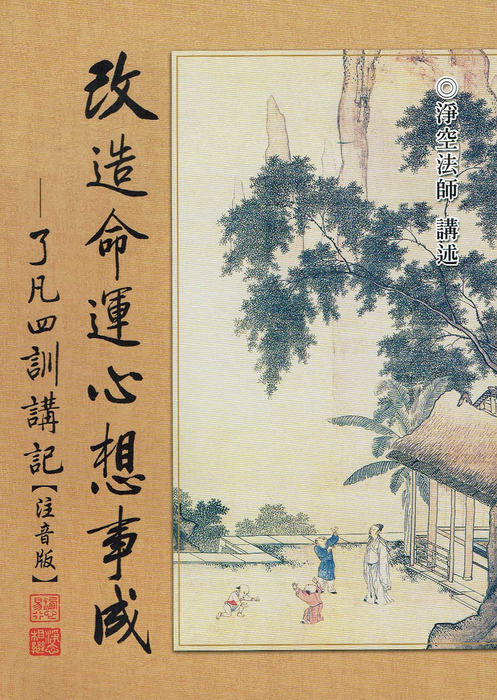 ◎淨空法師 講述
改造命運心想事成
——了凡四訓講記【注音版】